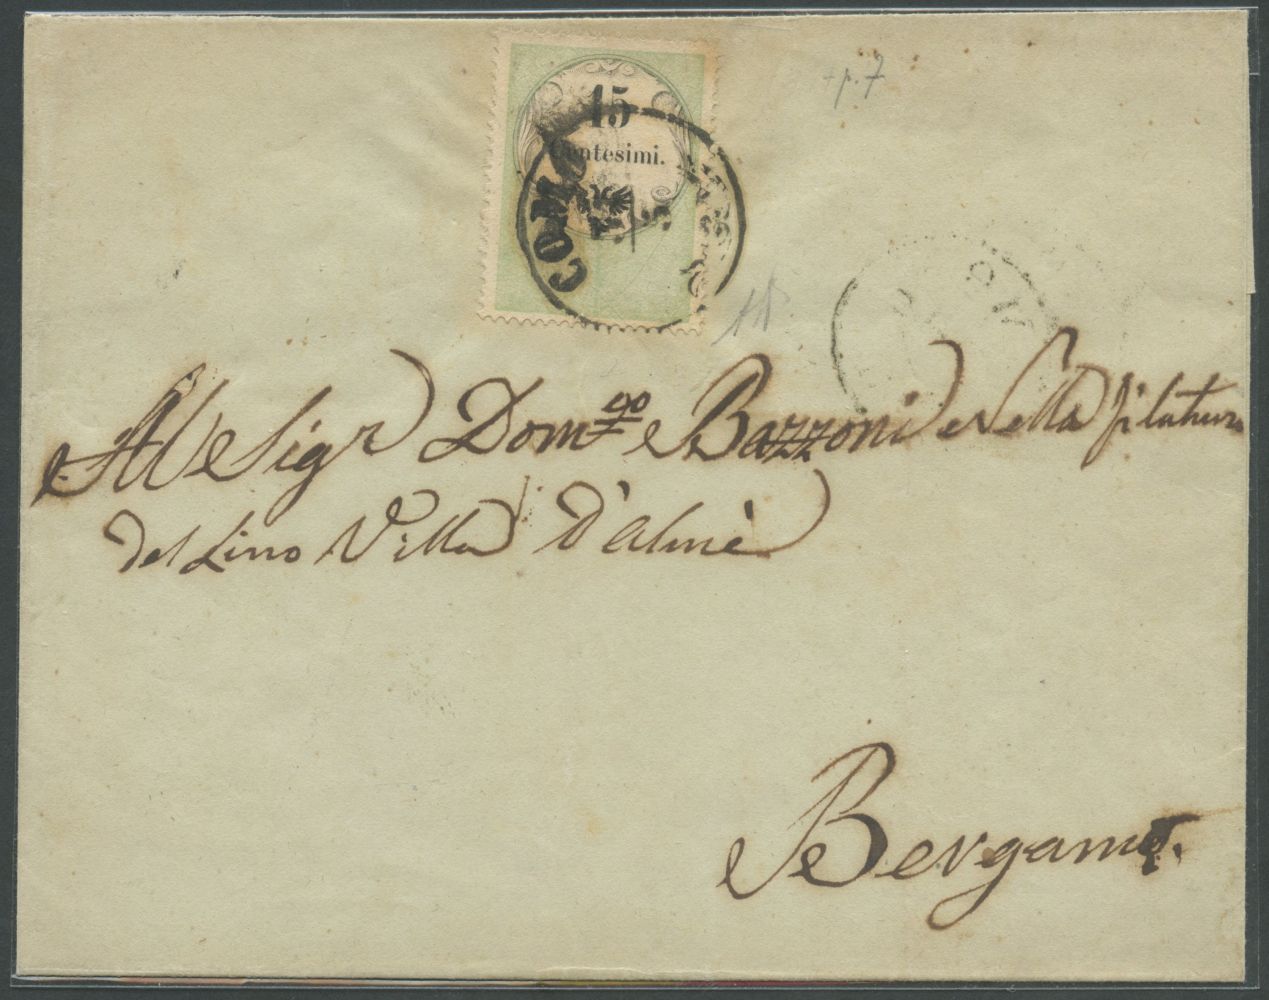 +p. 7
15
Centesimi.
COMO
5
Al Sigr Dom.go Bazzoni Nella filatura
del Lino Villa d'Almè
Bergamo.